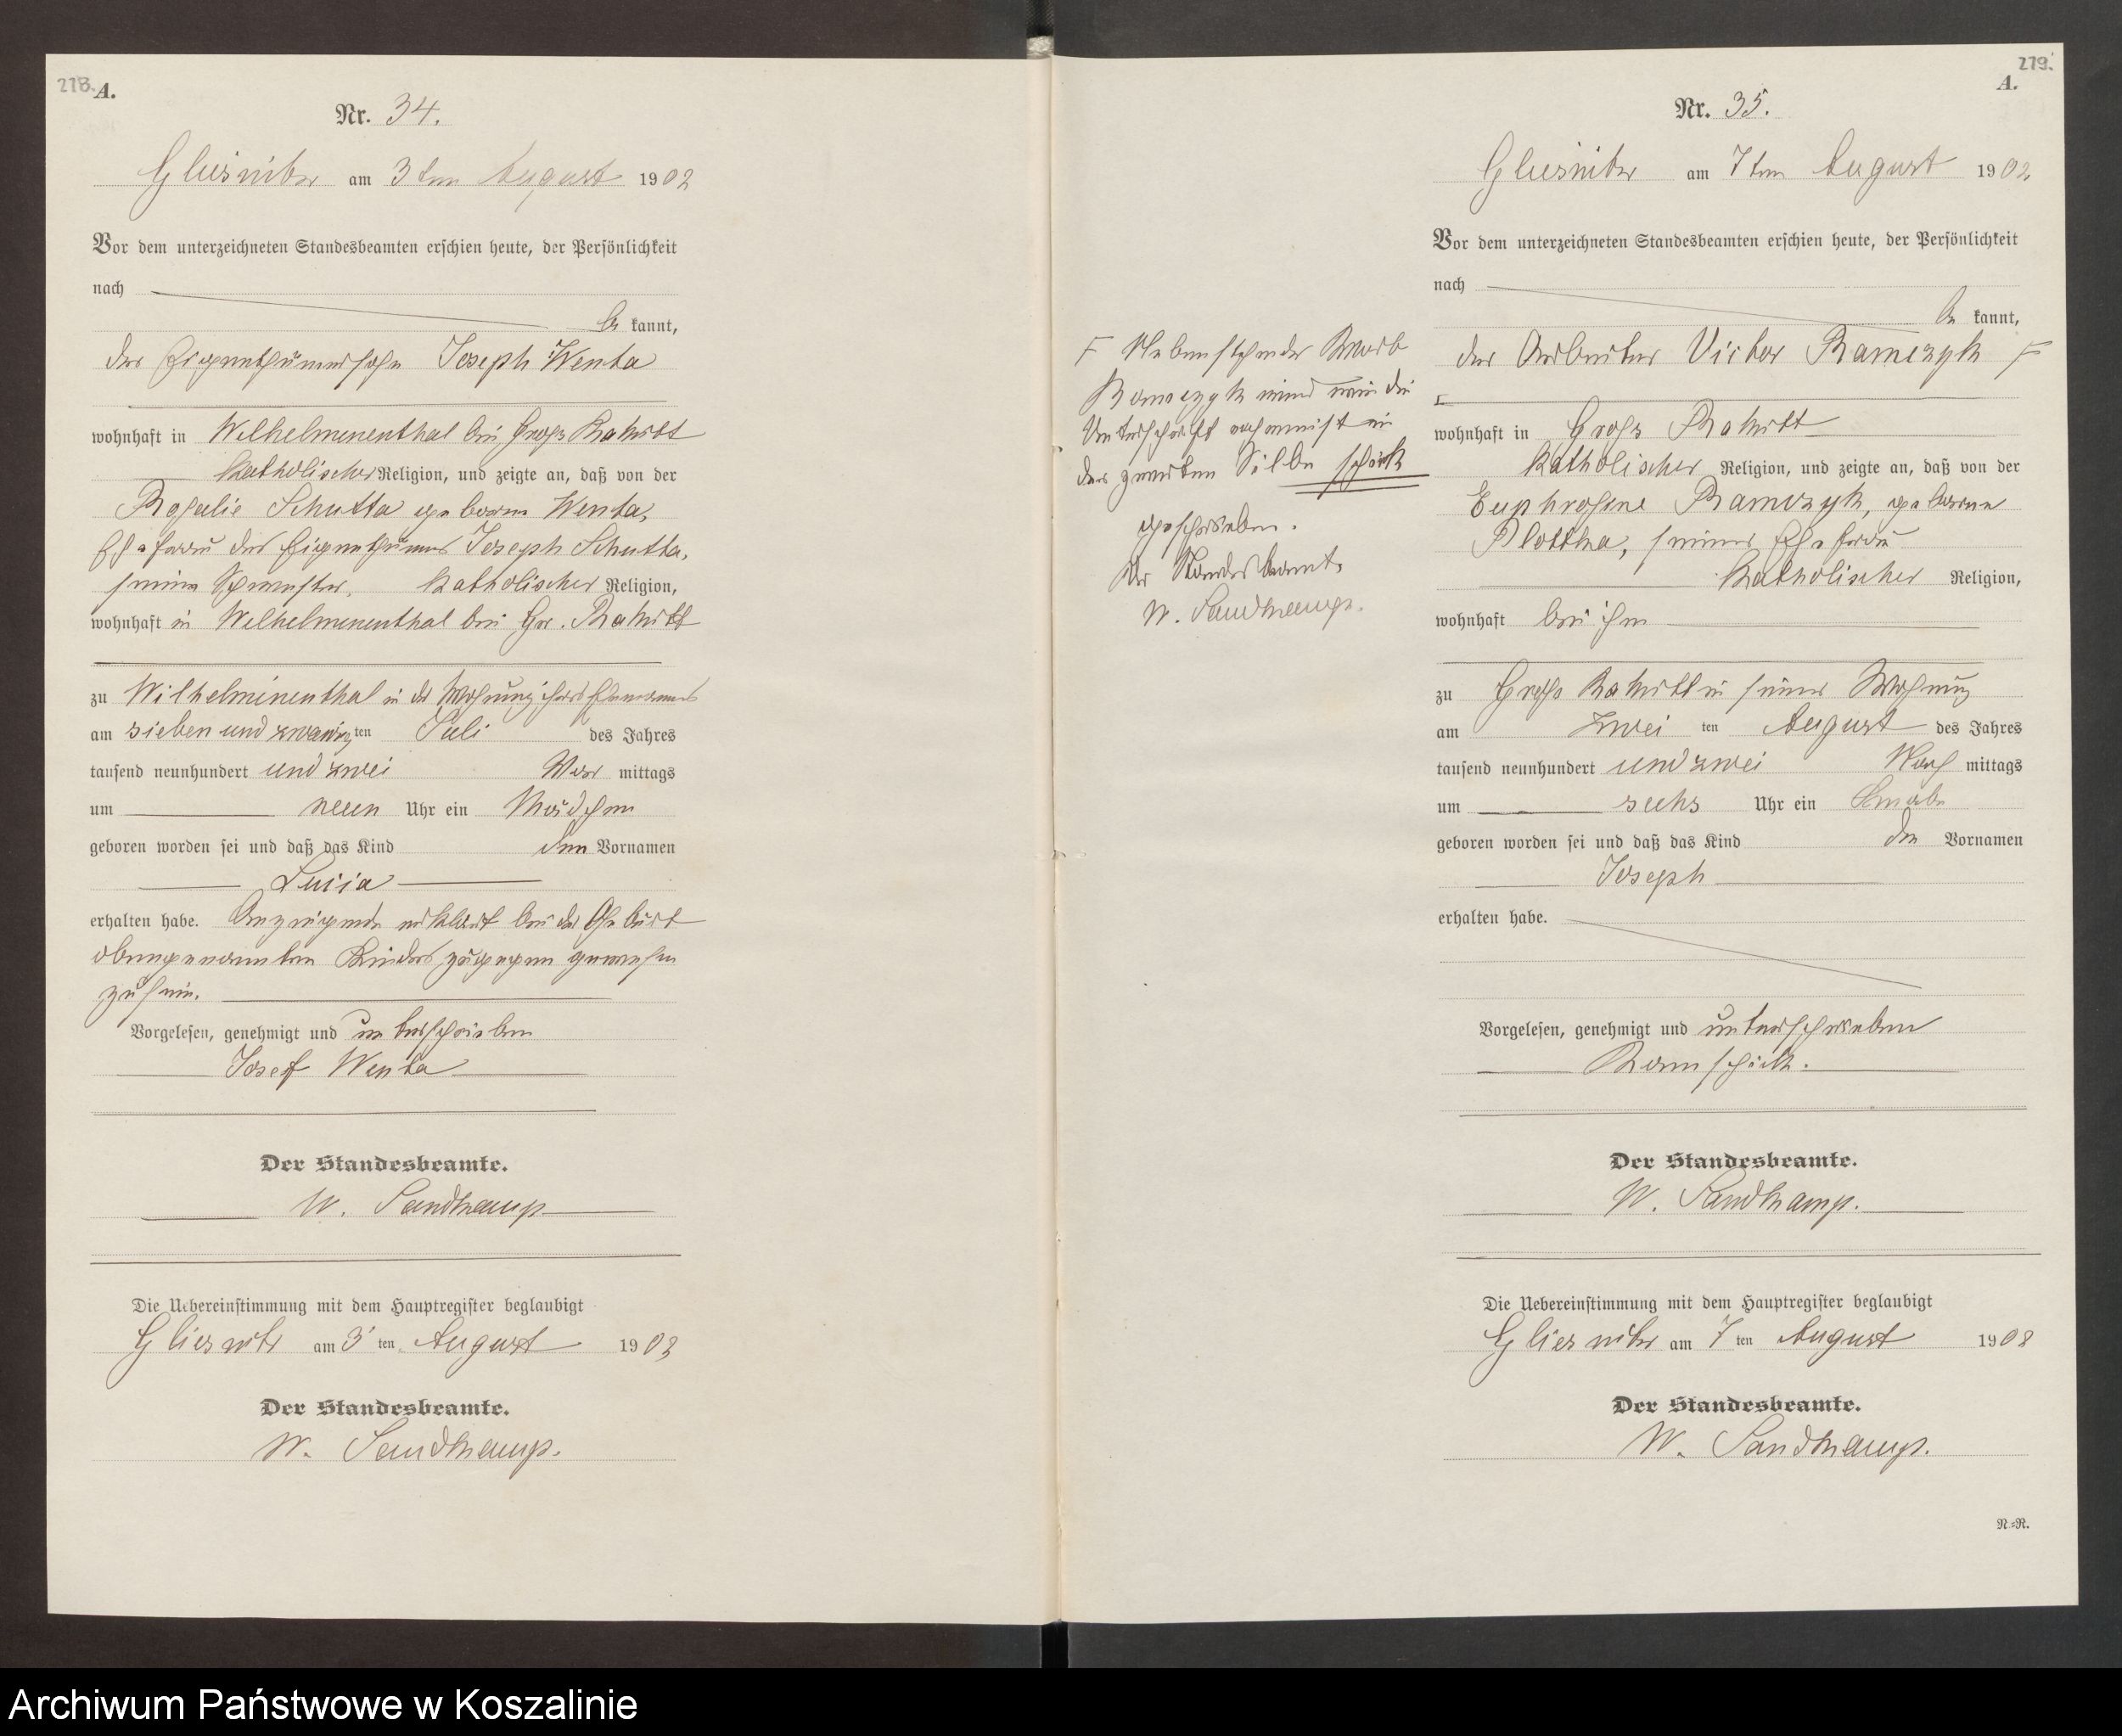 278.
A.
Nr. 34.
Gliesnitz am 3ten August 1902
Vor dem unterzeichneten Standesbeamten erschien heute, der Persönlichkeit
nach
be kannt,
der Eigenthümersohn Joseph Wenta
wohnhaft in Wilhelminenthal bei Gross Rakitt
katholischer Religion, und zeigte an, daß von der
Rosalie Schutta geborne Wenta,
Ehefrau des Eigenthümers Joseph Schutta,
seiner Schwester, katholischer Religion,
wohnhaft in Wilhelminenthal bei Gr. Rakitt
zu Wilhelminenthal in der Wohnung ihres Ehemannes
am sieben und zwanzigten Juli des Jahres
tausend neunhundert und zwei Vor mittags
um neun Uhr ein Mädchen
geboren worden sei und daß das Kind den Vornamen
Lucia
erhalten habe. Anzeigende erklärt bei der Geburt
obengenannten Kindes zugegen gewesen
zu sein.
Vorgelesen, genehmigt und unterschrieben
Josef Wenta
Der Standesbeamte.
W. Sandkamp
Die Uebereinstimmung mit dem Hauptregister beglaubigt
Gliesnitz am 3 ten August 1902
Der Standesbeamte.
W. Sandkamp.
279.
A.
Nr. 35.
Gliesnitz am 7ten August 1902.
Vor dem unterzeichneten Standesbeamten erschien heute, der Persönlichkeit
nach
be kannt,
der Arbeiter Victor Ramczyk F
wohnhaft in Gross Rakitt
katholischer Religion, und zeigte an, daß von der
Euphrosine Ramczyk, geborne
Plottka, seiner Ehefrau
katholischer Religion,
wohnhaft bei ihm
zu Gross Rakitt in seiner Wohnung
am zwei ten August des Jahres
tausend neunhundert und zwei Nach mittags
um sechs Uhr ein Knabe
geboren worden sei und daß das Kind den Vornamen
Joseph
erhalten habe.
Vorgelesen, genehmigt und unterschrieben
Ramschick.
Der Standesbeamte.
W. Sandkamp.
Die Uebereinstimmung mit dem Hauptregister beglaubigt
Gliesnitz am 7 ten August 1902
Der Standesbeamte.
W. Sandkamp.
N=R.
F Nebenstehender
Ramczyk wird wie die
Unterschrift in
der zweiten Silbe schick
geschrieben.
Der Standesbeamte
W. Sandkamp.
Archiwum Państwowe w Koszalinie